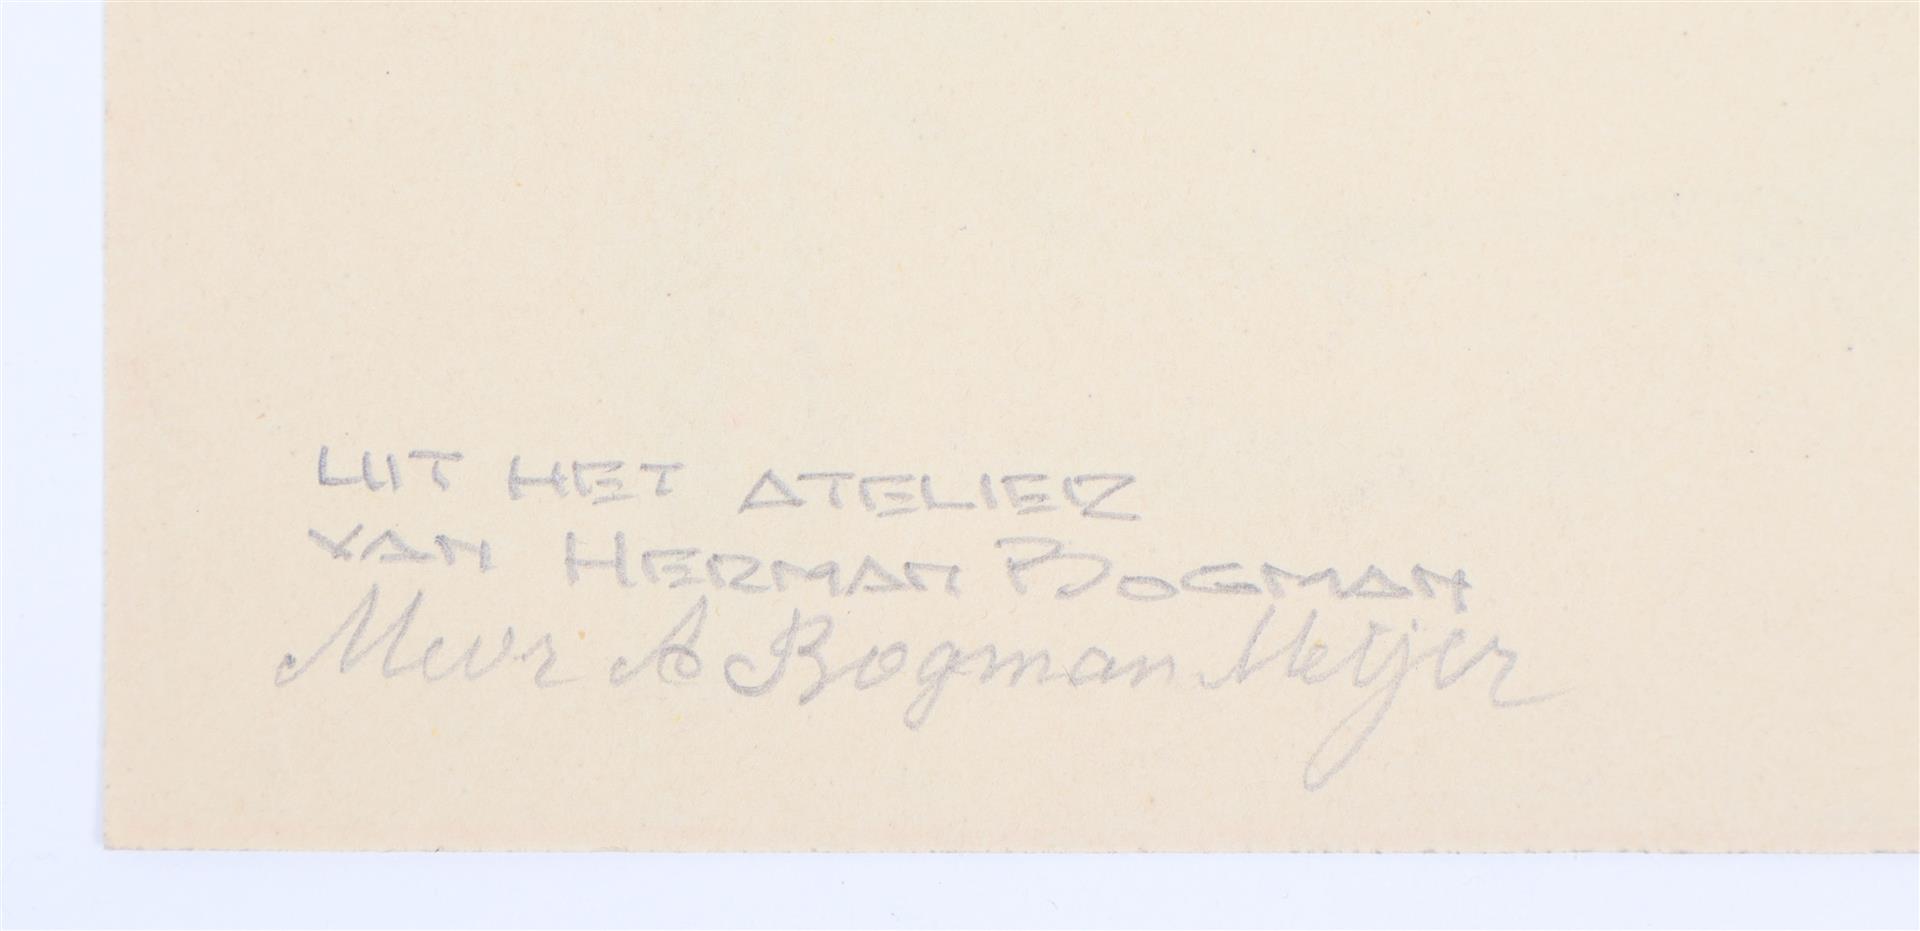 UIT HET ATELIER
VAN HERMAN BOGMAN
Mevr A Bogman Meijer